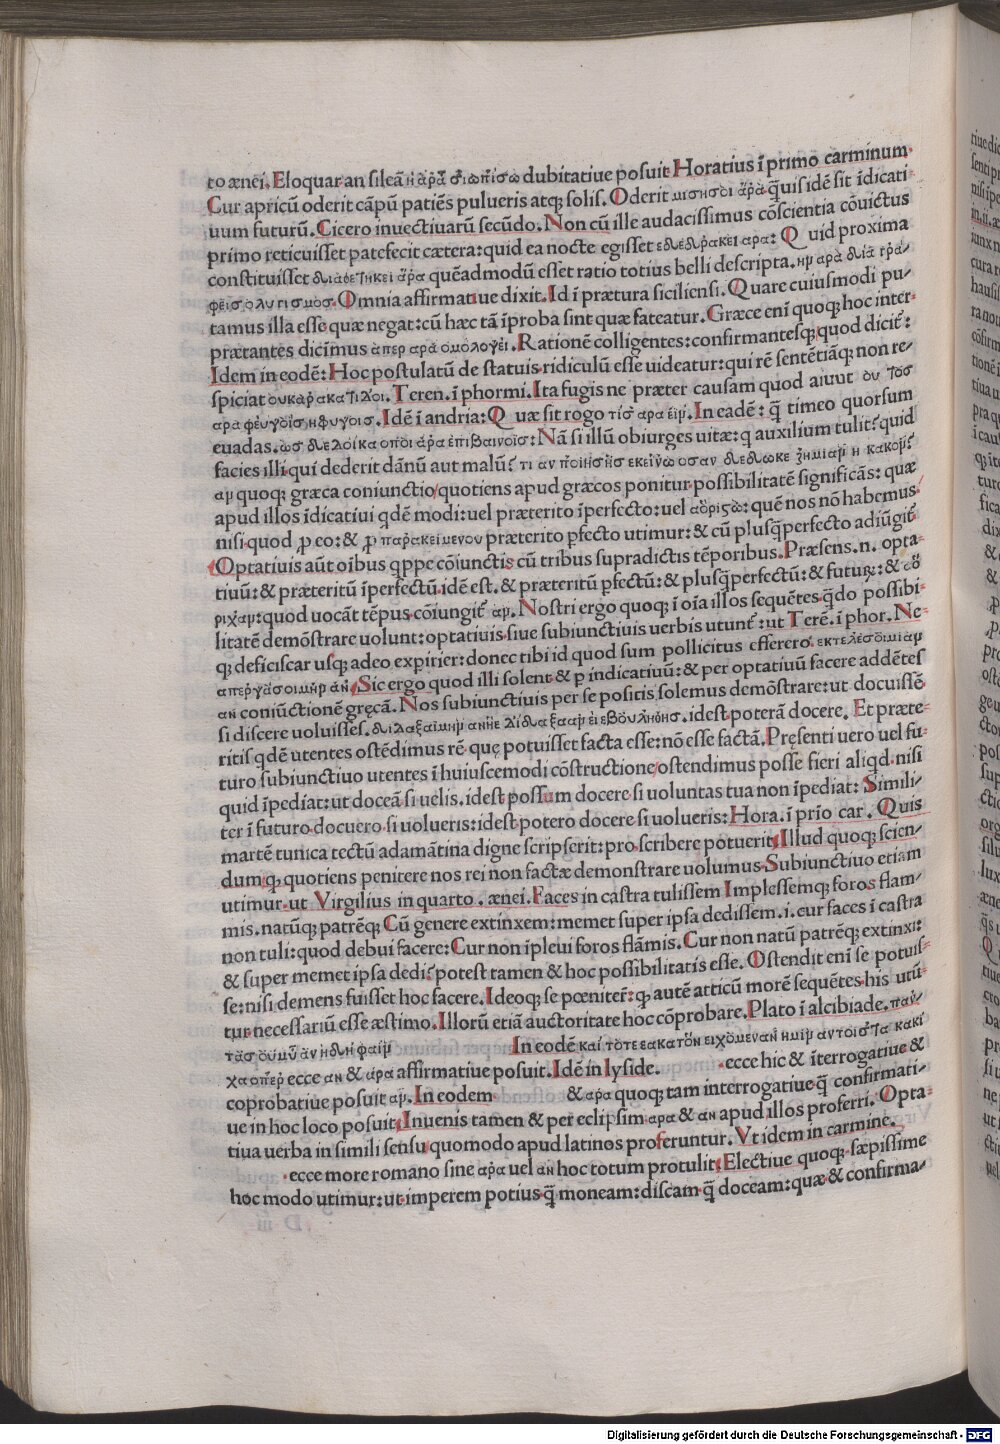 to ænei. Eloquar an sileā ἢ ἆρα σιωπήσω dubitatiue posuit Horatius ī primo carminum.
Cur apricū oderit cāpū patiēs pulueris atq; solis. Oderit μισήσοι ἄρα q̄uis idē sit īdicati-
uum futurū. Cicero inuectiuarū secūdo. Non cū ille audacissimus cōscientia cōuictus
primo reticuisset patefecit cætera: quid ea nocte egisset εδεδρακει αρα: Quid proxima
constituisset διαθετηκει ἄρα quēadmodū esset ratio totius belli descripta. ην αρα δια γρα-
φεισ ολυτισμοσ. Omnia affirmatiue dixit. Id ī prætura siciliensi. Quare cuiusmodi pu-
tamus illa esse quæ negat: cū hæc tā īproba sint quæ fateatur. Græce enī quoq; hoc inter-
prætantes dicīmus ἁπερ αρα ομολογει. Rationē colligentes: confirmantesq; quod dicit̄:
Idem in eodē: Hoc postulatū de statuis ridiculū esse uideatur: qui rē sentētiāq; non re-
spiciat ουκ αρα κατιδοι. Teren. ī phormi. Ita fugis ne præter causam quod aiunt ου τοσ
αρα φευγοισ η φυγοισ. Idē ī andria: Quæ sit rogo τισ αρα ειη. In eadē: q̄ timeo quorsum
euadas. ωσ δεδοικα οποι αρα επιβαινοισ: Nā si illū obiurges uitæ: q auxilium tulit: quid
facies illi qui dederit dānū aut malū? τι αν ποιησησ εκεινω οσαν δεδωκε ζημιαν η κακον;
αν quoq; græca coniunctio quotiens apud græcos ponitur possibilitatē significās: quæ
apud illos īdicatiui qdē modi: uel præterito īperfecto: uel αοριστω: quē nos nō habemus
nisi quod ꝓ eo: & ꝓ παρακειμενου præterito ꝑfecto utimur: & cū plusq̄perfecto adiūgit̄
Optatiuis aūt oībus qppe cōiunctis cū tribus supradictis tēporibus. Præsens .n. opta-
tiuū: & præteritū īperfectū idē est. & præteritū ꝑfectū: & plusq̄perfectū: & futuꝝ: & αο
ριχαν: quod uocāt tēpus cōiungit̄ αν. Nostri ergo quoq; ī oīa illos sequētes q̄do possibi-
litatē demōstrare uolunt: optatiuis siue subiunctiuis uerbis utunt̄: ut Terē. ī phor. Ne-
q; deficiscar usq; adeo experirier: donec tibi id quod sum pollicitus effecero. εκτελεσοιμι αν
απεργασοιμην αν. Sic ergo quod illi solent & ꝑ indicatiuū: & per optatiuū facere addētes
αν coniūctionē gręcā. Nos subiunctiuis per se positis solemus demōstrare: ut docuissē
si discere uoluisses. διδαξαιμην αν η εδιδαξα αν ει εβουληθησ. idest poterā docere. Et præte-
ritis qdē utentes ostēdimus rē quę potuisset facta esse: nō esse factā. Pręsenti uero uel fu-
turo subiunctiuo utentes ī huiuscemodi cōstructione ostendimus posse fieri aliqd. nisi
quid īpediat: ut doceā si uelis. idest possum docere si uoluntas tua non īpediat: Simili-
ter ī futuro docuero si uolueris: idest potero docere si uolueris: Hora. ī prio car. Quis
martē tunica tectū adamātina digne scripserit: pro scribere potuerit Illud quoq; scien-
dum q; quotiens penitere nos rei non factæ demonstrare uolumus Subiunctiuo etiam
utimur. ut Virgilius in quarto. ænei. Faces in castra tulissem Implessemq; foros flam-
mis. natūq; patrēq; Cū genere extinxem: memet super ipsa dedissem. i. cur faces ī castra
non tuli: quod debui facere: Cur non īpleui foros flāmis. Cur non natū patrēq; extinxi:
& super memet ipsa dedi? potest tamen & hoc possibilitatis esse. Ostendit enī se potuis-
se: nisi demens fuisset hoc facere. Ideoq; se pœniteri: q; autē atticū morē sequētes his utū-
tur necessariū esse æstimo. Illorū etiā auctoritate hoc cōprobare. Plato ī alcibiade. παν-
τασ ουμυ αν ηδιη φαιην In eodē και τοτε εακατον ειχομεναν ημιν αν τοισ τα κακι
χα οπερ ecce αν & αρα affirmatiue posuit. Idē in lyside. ecce hic & īterrogatiue &
coprobatiue posuit αν. In eodem & αρα quoq; tam interrogatiue q̄ confirmati-
ue in hoc loco posuit Inuenis tamen & per eclipsim αρα & αν apud illos proferri. Opta-
tiua uerba in simili sensu quomodo apud latinos proferuntur. Vt idem in carmine.
ecce more romano sine αρα uel αν hoc totum protulit Electiue quoq; sæpissime
hoc modo utimur: ut imperem potius q̄ moneam: discam q̄ doceam: quæ & confirma-
Digitalisierung gefördert durch die Deutsche Forschungsgemeinschaft - DFG